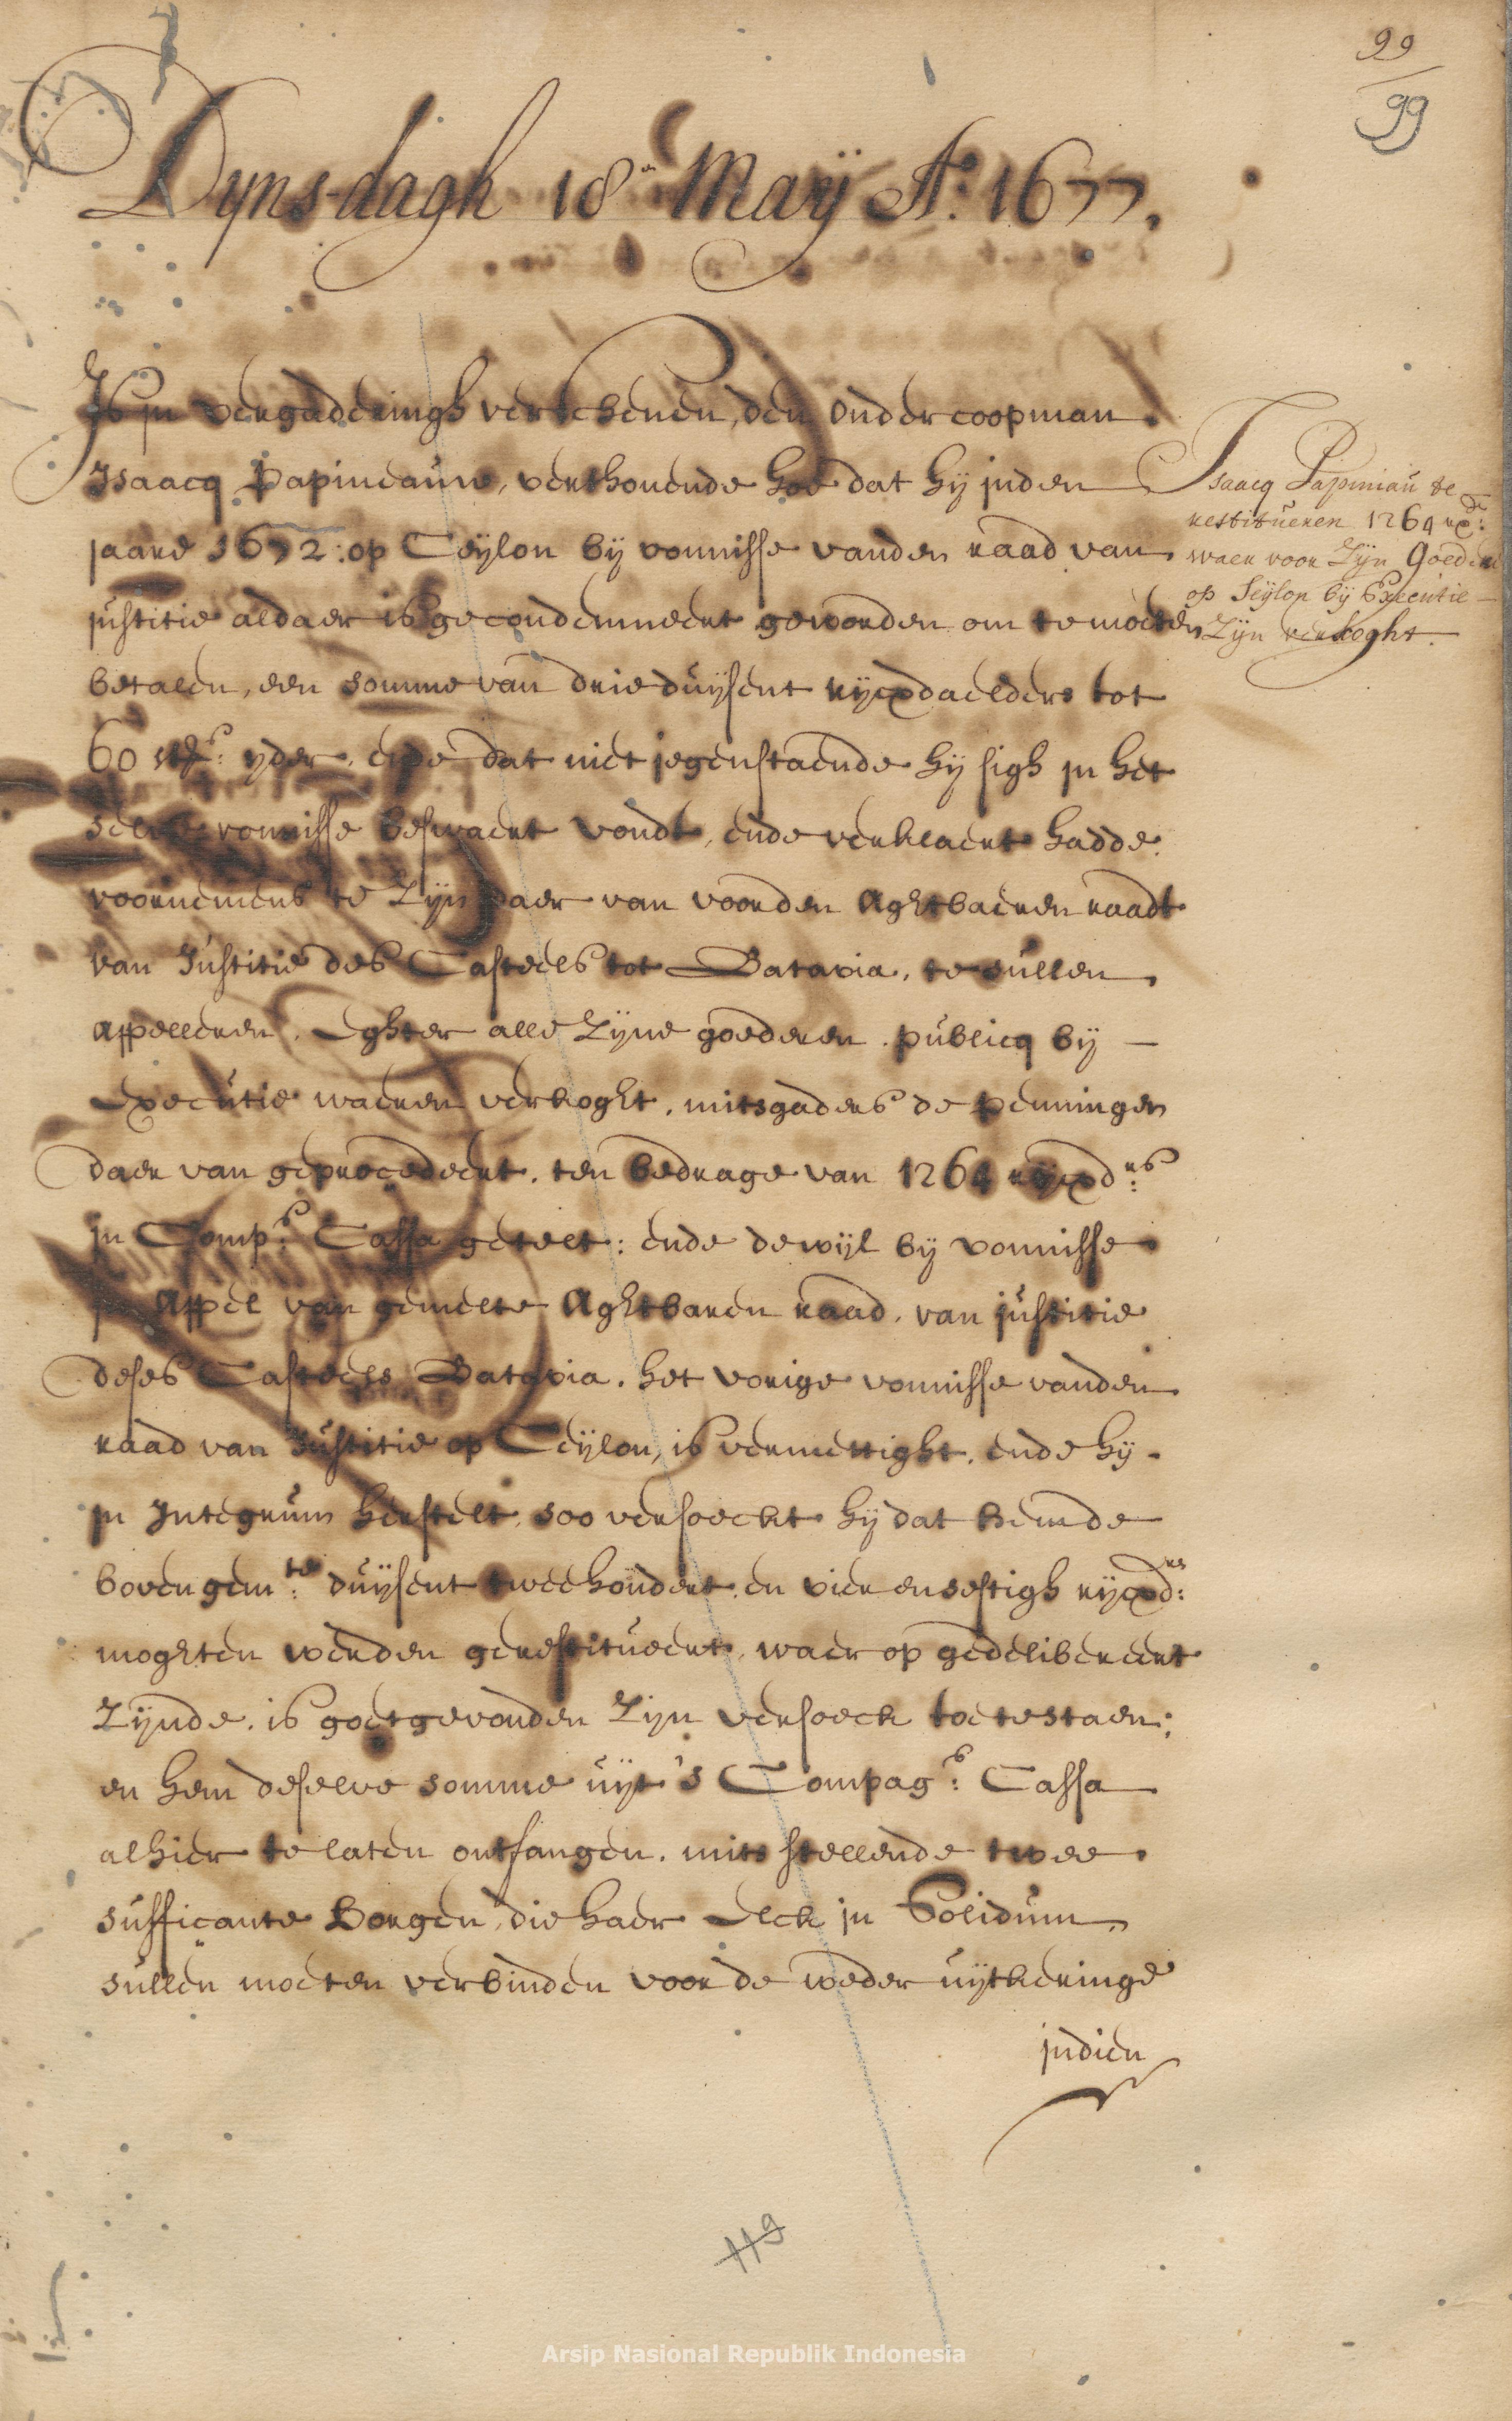 99
99
Dynsdagh 18en Maÿ Ao: 1677.
Is in vergaderingh verschenen, den ondercoopman
Isaacq Papineauw, verthonende hoe dat hij inden
jaare 1672: op Ceÿlon bij vonnisse vanden raad van
justitie aldaer is gecondemneert geworden om te moeten
betalen, een somme van drieduÿsent rijcxdaelders tot
60 strs: yder, ende dat niet jegenstaende hij sigh in het
selve vonnisse beswaert vondt, ende verklaert hadde
voornemens te Zijn daer van voorden Aghtbaeren raadt
van Justitie des Casteels tot Batavia, te sullen
appelleren, Eghter alle Zijne goederen publicq bij
Executie waeren verkoght, mitsgaders de penningen
daer van geprocedeert, ten bedrage van 1264 rijcxd:rs
in Comp:s Cassa getelt: ende dewijl bij vonnisse
in Appel van gemelte Aghtbaren raad, van justitie
deses Casteels Batavia, het vorige vonnisse vanden
raad van Justitie op Ceijlon, is vernietight, ende hij
in Integrum herstelt, soo versoeckt hij dat hem de
bovengem:te duijsent tweehondert en vierensestigh rijcxd:rs
moghten werden gerestitueert, waer op gedelibereert
Zijnde, is goetgevonden Zijn versoeck toe te staen;
en hem deselve somme uijt 's Compag:s Cassa
alhier te laten ontfangen, mits stellende twee
sufficante Borgen, die haer Elck in Solidum
sullen moeten verbinden voor de weder uijtkeringe
indien
Isaacq Papiniau te
restitueren 1264 rxd:
waer voor Zijn Goederen
op Seijlon bij Executie
Zijn verkoght.
119
Arsip Nasional Republik Indonesia